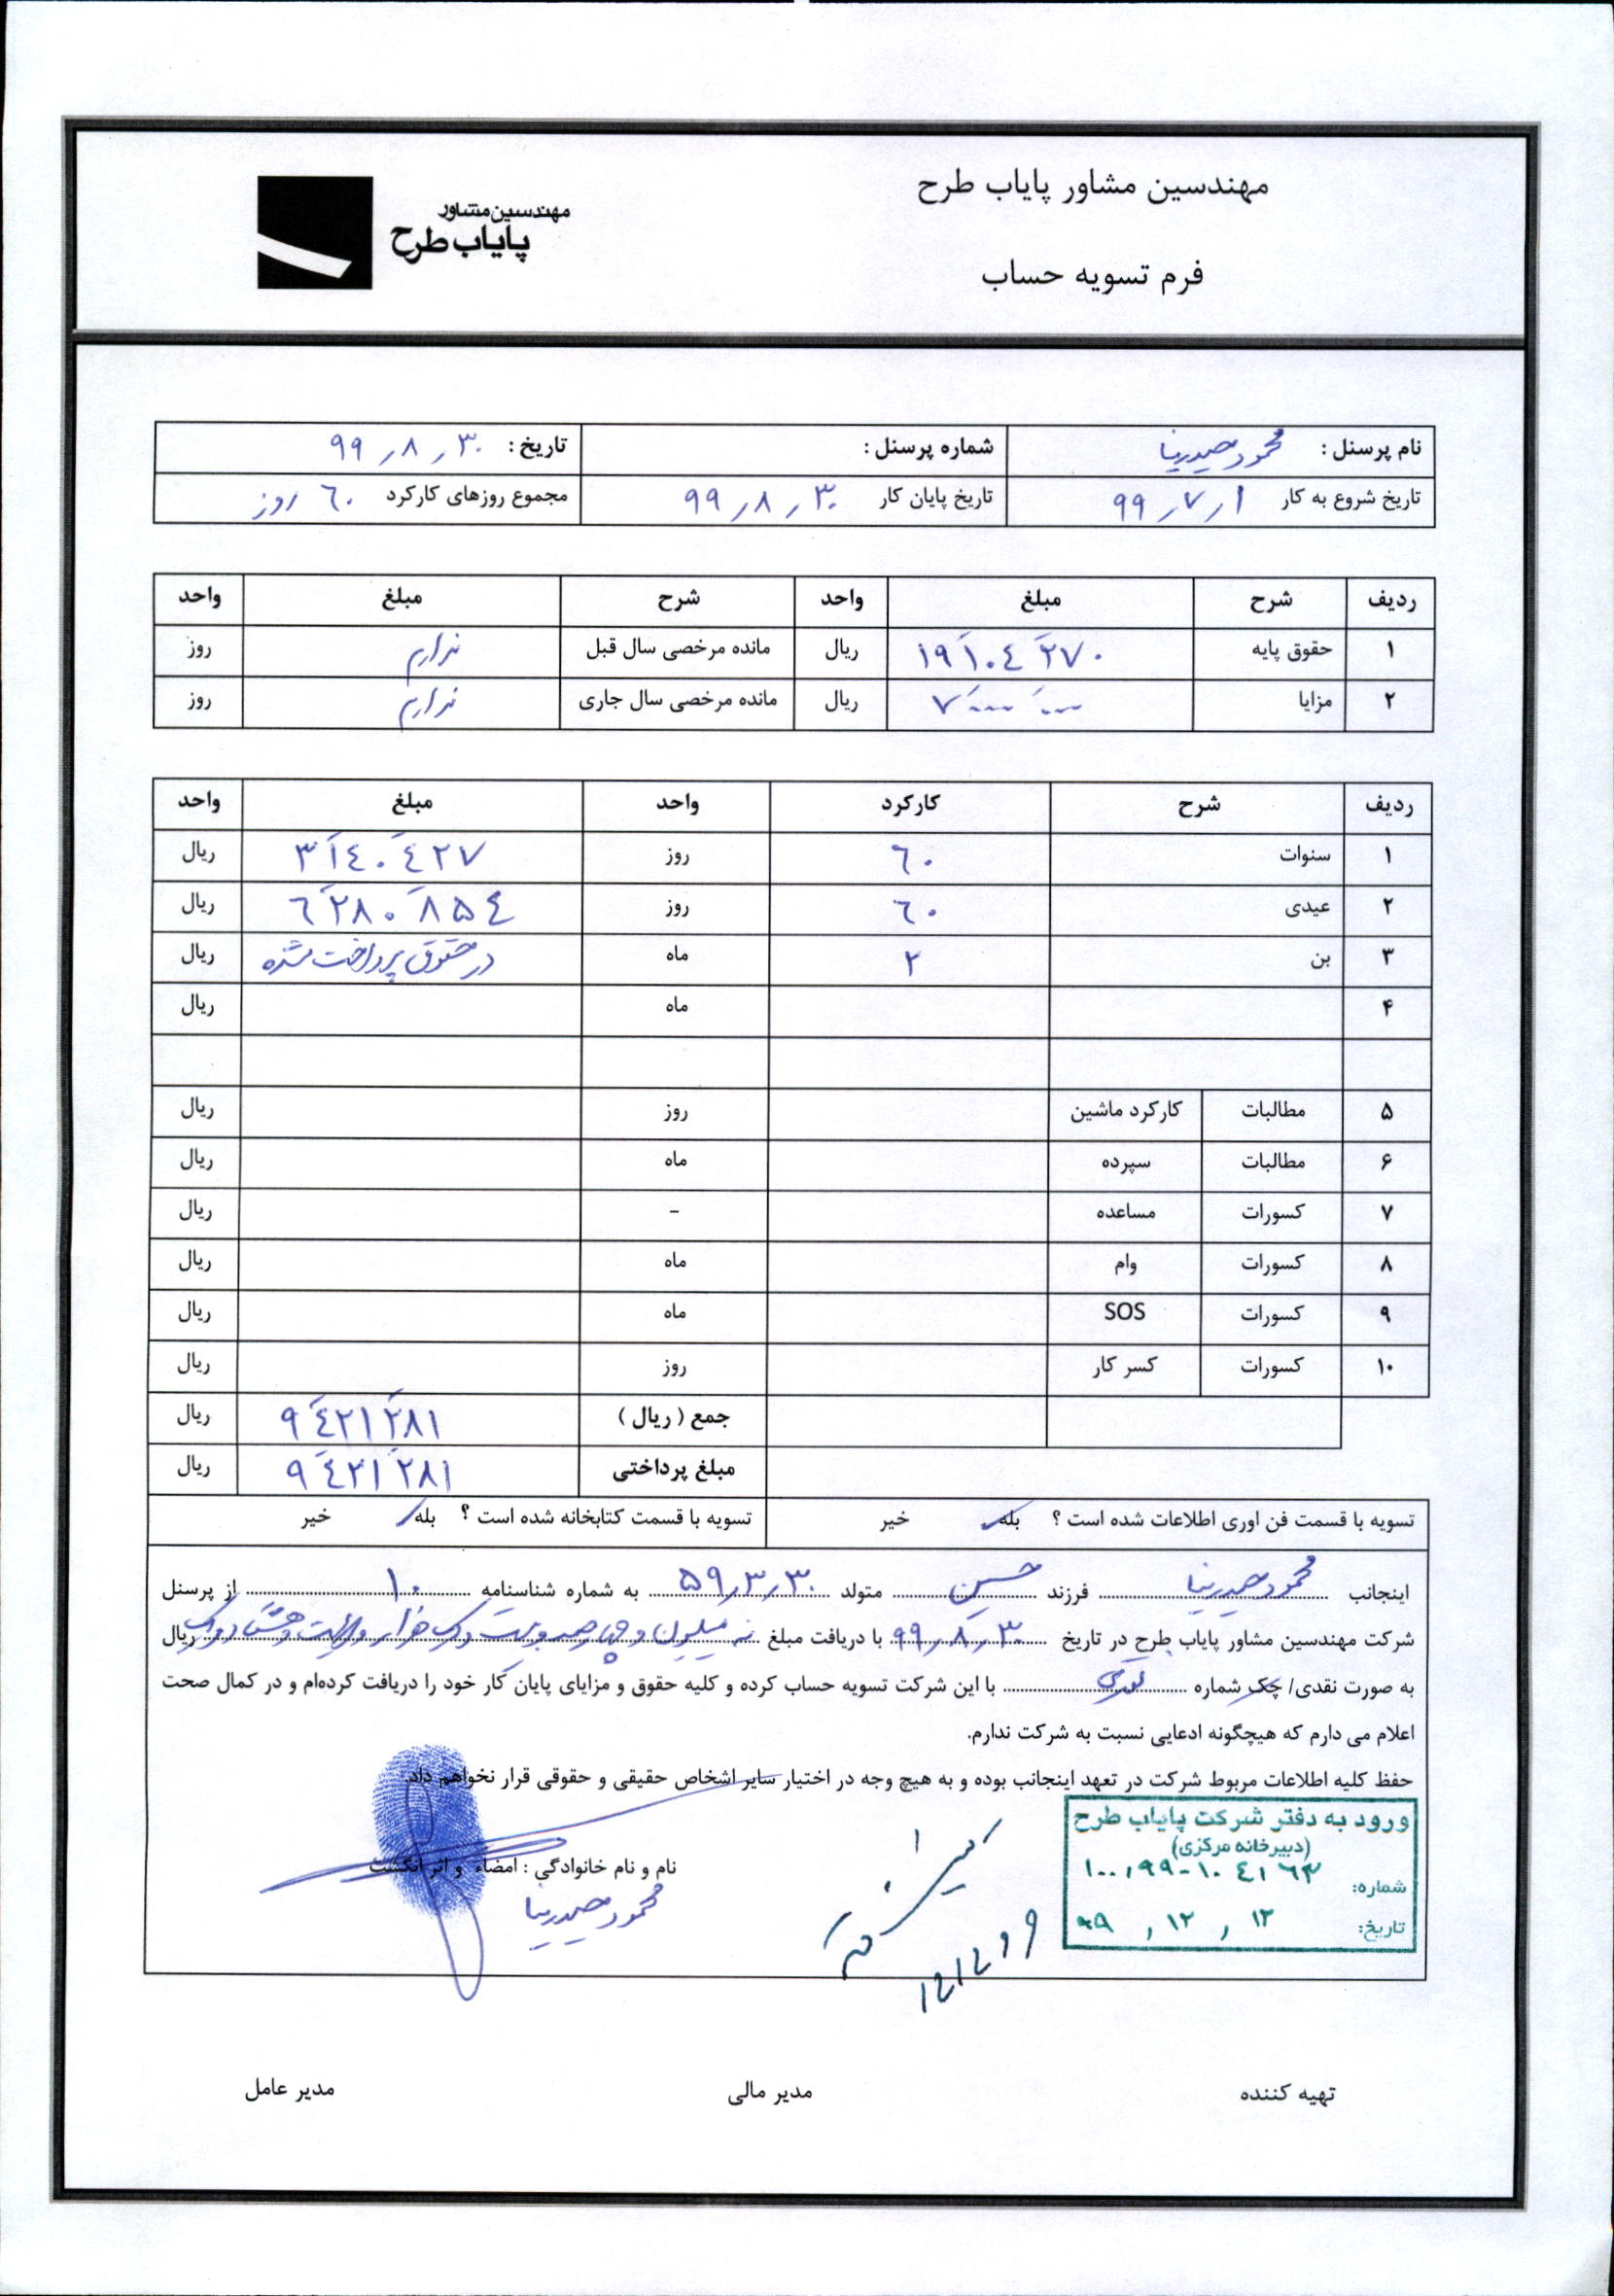 مهندسین مشاور پایاب طرح
مهندسین مشاور
پایاب طرح
فرم تسویه حساب
نام پرسنل : محمود حیدرنیا شماره پرسنل : تاریخ : ۹۹٫۸٫۳۰
تاریخ شروع به کار ۹۹٫۷٫۱ تاریخ پایان کار ۹۹٫۸٫۳۰ مجموع روزهای کارکرد ۶۰ روز
ردیف شرح مبلغ واحد شرح مبلغ واحد
۱ حقوق پایه ۱۹۱۰۴۲۷۰ ریال مانده مرخصی سال قبل ندارم روز
۲ مزایا ۷۰۰۰۰۰۰ ریال مانده مرخصی سال جاری ندارم روز
ردیف شرح کارکرد واحد مبلغ واحد
۱ سنوات ۶۰ روز ۳۱۴۰۴۲۷ ریال
۲ عیدی ۶۰ روز ۶۲۸۰۸۵۴ ریال
۳ بن ۲ ماه در حقوق پرداخت شده ریال
۴ ماه ریال
۵ مطالبات کارکرد ماشین روز ریال
۶ مطالبات سپرده ماه ریال
۷ کسورات مساعده - ریال
۸ کسورات وام ماه ریال
۹ کسورات SOS ماه ریال
۱۰ کسورات کسر کار روز ریال
جمع ( ریال ) ۹۴۲۱۲۸۱ ریال
مبلغ پرداختی ۹۴۲۱۲۸۱ ریال
تسویه با قسمت فن اوری اطلاعات شده است ؟ بله خیر تسویه با قسمت کتابخانه شده است ؟ بله خیر
اینجانب محمود حیدرنیا فرزند حسین متولد ۵۹٫۳٫۳۰ به شماره شناسنامه ۱۰ از پرسنل
شرکت مهندسین مشاور پایاب طرح در تاریخ ۹۹٫۸٫۳۰ با دریافت مبلغ نه میلیون و چهارصد و بیست و یک هزار و دویست و هشتاد و یک ریال
به صورت نقدی/ چک شماره نقدی با این شرکت تسویه حساب کرده و کلیه حقوق و مزایای پایان کار خود را دریافت کرده‌ام و در کمال صحت
اعلام می دارم که هیچگونه ادعایی نسبت به شرکت ندارم.
حفظ کلیه اطلاعات مربوط شرکت در تعهد اینجانب بوده و به هیچ وجه در اختیار سایر اشخاص حقیقی و حقوقی قرار نخواهم داد.
ورود به دفتر شرکت پایاب طرح
(دبیرخانه مرکزی)
شماره: ۱۰۰٫۹۹-۱۰۴۱۶۳
تاریخ: ۹۹٫۱۲٫۱۲
نام و نام خانوادگی : امضاء و اثر انگشت
محمود حیدرنیا
تهیه کننده مدیر مالی مدیر عامل